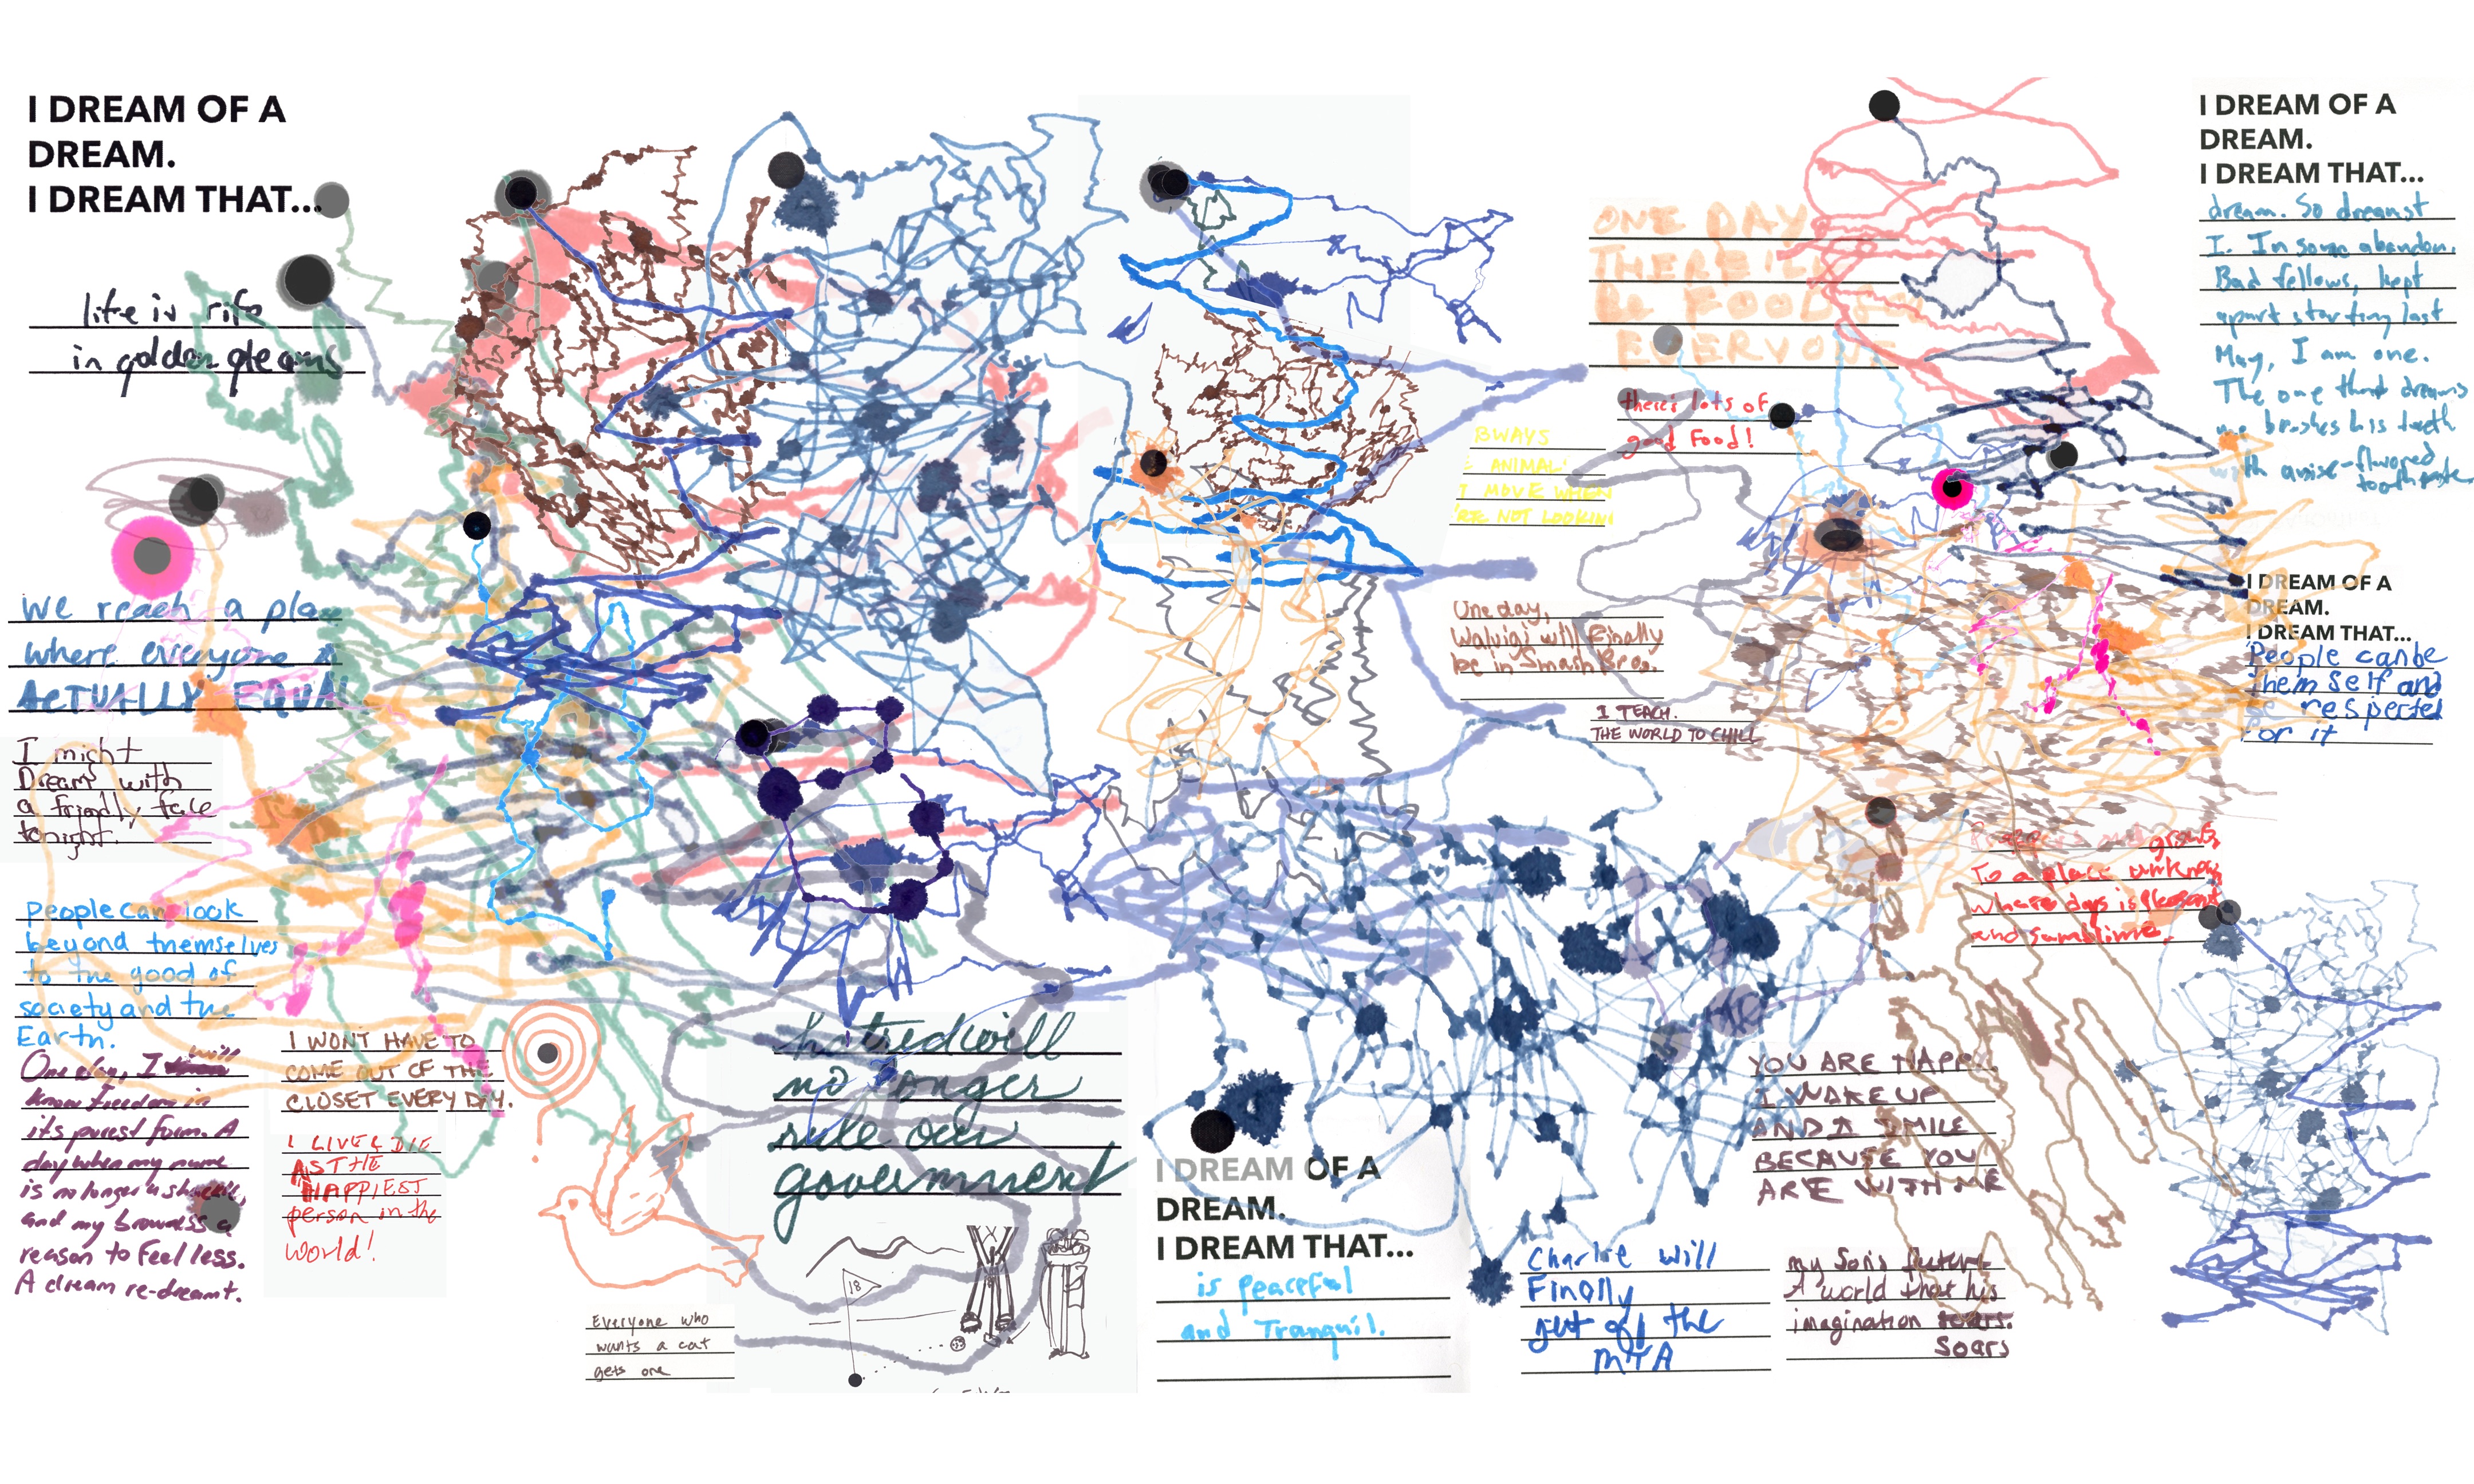 I DREAM OF A
DREAM.
I DREAM THAT...
life is rife
in golden gleams
We reach a place
where everyone is
ACTUALLY EQUAL
I might
Dream with
a friendly face
tonight.
people can look
beyond themselves
to the good of
society and the
Earth.
One day, I will
know freedom in
it's purest form. A
day when my name
is no longer a shackle,
and my brownness a
reason to feel less.
A dream re-dreamt.
I WONT HAVE TO
COME OUT OF THE
CLOSET EVERY DAY.
I LIVE & DIE
AS THE
HAPPIEST
person in the
world!
Everyone who
wants a cat
gets one
hatred will
no longer
rule our
government
18
I DREAM OF A
DREAM.
I DREAM THAT...
is peaceful
and Tranquil.
Charlie will
Finally
get off the
MTA
my Son's future.
A world that his
imagination
Soars
YOU ARE HAPPY
I WAKE UP
AND SMILE
BECAUSE YOU
ARE WITH ME
ONE DAY
THERE'LL
BE FOOD
EVERYONE
there's lots of
good Food!
BWAYS
ANIMAL
T MOVE WHEN
'RE NOT LOOKIN
One day,
Waluigi will finally
be in Smash Bros.
I TEACH
THE WORLD TO CHILL
and grows
To a place unknown
where days is pleasant
and sumblime.
I DREAM OF A
DREAM.
I DREAM THAT...
dream. So dreamst
I. In some abandon.
Bad fellows, kept
apart starting last
May, I am one.
The one that dreams
he brushes his teeth
with anise-flavored
toothpaste
I DREAM OF A
DREAM.
I DREAM THAT...
People can be
themself and
be respected
for it